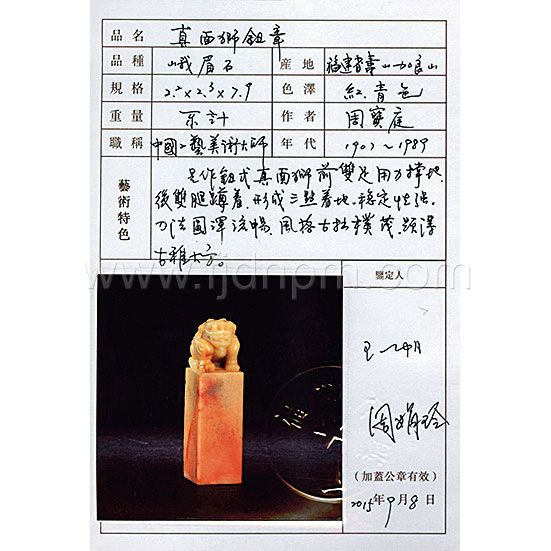 品名 真面獅鈕章
品種 峨眉石 產地 福建省壽山加良山
規格 2.2×2.3×7.9 色澤 紅.青色
重量 不計 作者 周寶庭
職稱 中國工藝美術大師 年代 1907~1989
藝術特色
是作鈕式真面獅前雙足用力撐地.
後雙腿蹲着.形成三點着地.穩定性强.
刀法圓渾流暢.風格古拙樸茂.顯得
古雅大方。
www.fjdnpm.com
鑒定人
王一帆
周娟玲
(加蓋公章有效)
2015年9月8日